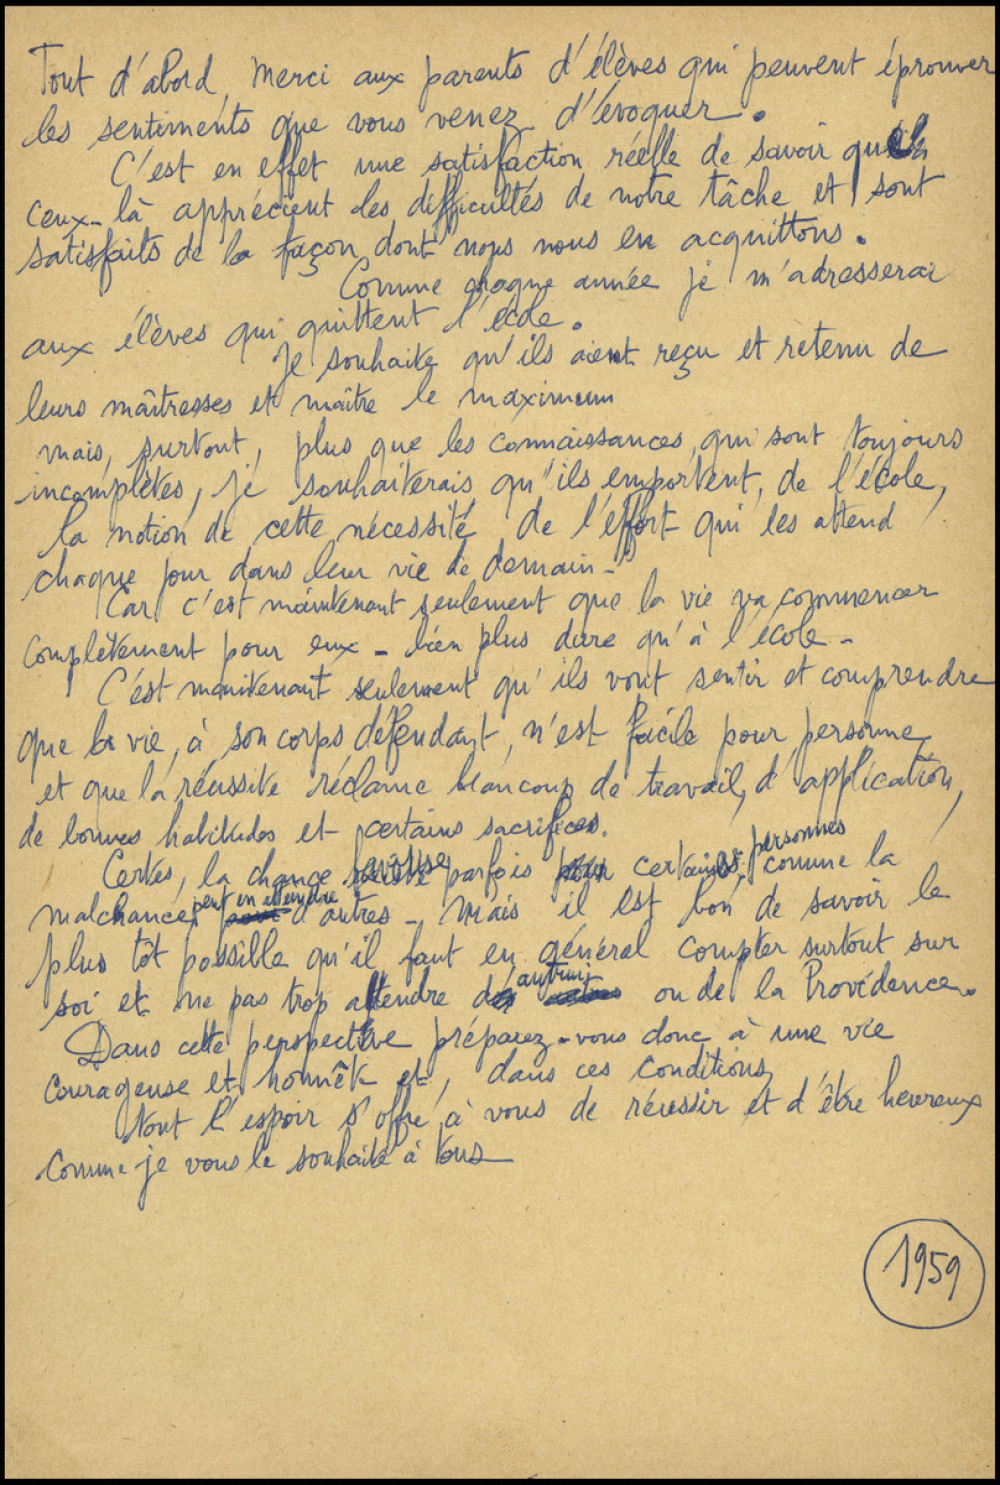 Tout d'abord, Merci aux parents d'élèves qui peuvent éprouver
les sentiments que vous venez d'évoquer.
C'est en effet une satisfaction réelle de savoir que
ceux-là apprécient les difficultés de notre tâche et sont
satisfaits de la façon dont nous nous en acquittons.
Comme chaque année je m'adresserai
aux élèves qui quittent l'école.
Je souhaite qu'ils aient reçu et retenu de
leurs maîtresses et maître le maximum
mais, surtout, plus que les connaissances, qui sont toujours
incomplètes, je souhaiterais qu'ils emportent, de l'école,
la notion de cette nécessité de l'effort qui les attend
chaque jour dans leur vie de demain-
Car c'est maintenant seulement que la vie va commencer
complètement pour eux - bien plus dure qu'à l'école -
C'est maintenant seulement qu'ils vont sentir et comprendre
que la vie, à son corps défendant, n'est facile pour personne
et que la réussite réclame beaucoup de travail, d'application,
de bonnes habitudes et certains sacrifices.
Certes, la chance favorise parfois certaines personnes, comme la
malchance peut en atteindre d'autres - Mais il est bon de savoir le
plus tôt possible qu'il faut en général compter surtout sur
soi et ne pas trop attendre d'autrui ou de la Providence.
Dans cette perspective préparez-vous donc à une vie
courageuse et honnête et, dans ces conditions,
tout l'espoir s'offre à vous de réussir et d'être heureux
comme je vous le souhaite à tous
1959